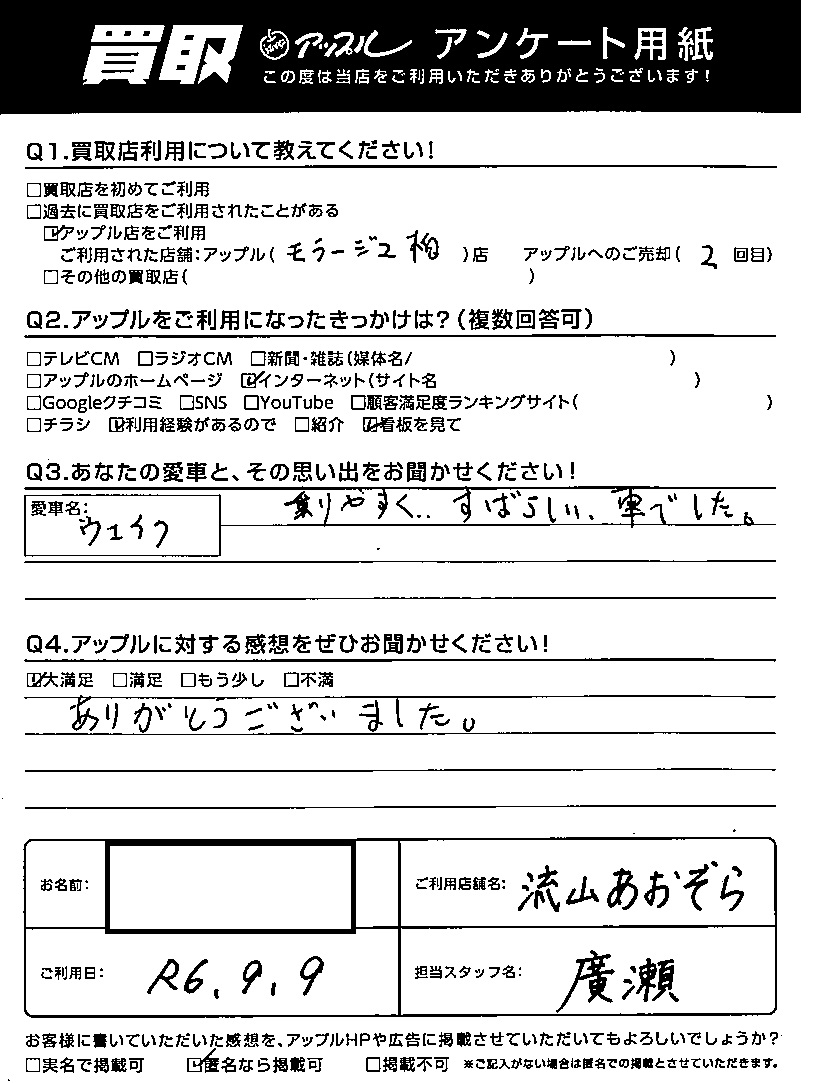 買取 アップル アンケート用紙
この度は当店をご利用いただきありがとうございます!
Q1.買取店利用について教えてください!
□買取店を初めてご利用
□過去に買取店をご利用されたことがある
☑アップル店をご利用
ご利用された店舗:アップル( モラージュ柏 )店 アップルへのご売却( 2 回目)
□その他の買取店( )
Q2.アップルをご利用になったきっかけは?(複数回答可)
□テレビCM □ラジオCM □新聞・雑誌(媒体名/ )
□アップルのホームページ ☑インターネット(サイト名 )
□Googleクチコミ □SNS □YouTube □顧客満足度ランキングサイト( )
□チラシ ☑利用経験があるので □紹介 ☑看板を見て
Q3.あなたの愛車と、その思い出をお聞かせください!
愛車名: ウェイク 乗りやすく、すばらしい、車でした。
Q4.アップルに対する感想をぜひお聞かせください!
☑大満足 □満足 □もう少し □不満
ありがとうございました。
お名前: ご利用店舗名: 流山あおぞら
ご利用日: R6.9.9 担当スタッフ名: 廣瀬
お客様に書いていただいた感想を、アップルHPや広告に掲載させていただいてもよろしいでしょうか?
□実名で掲載可 ☑匿名なら掲載可 □掲載不可 ※ご記入がない場合は匿名での掲載とさせていただきます。